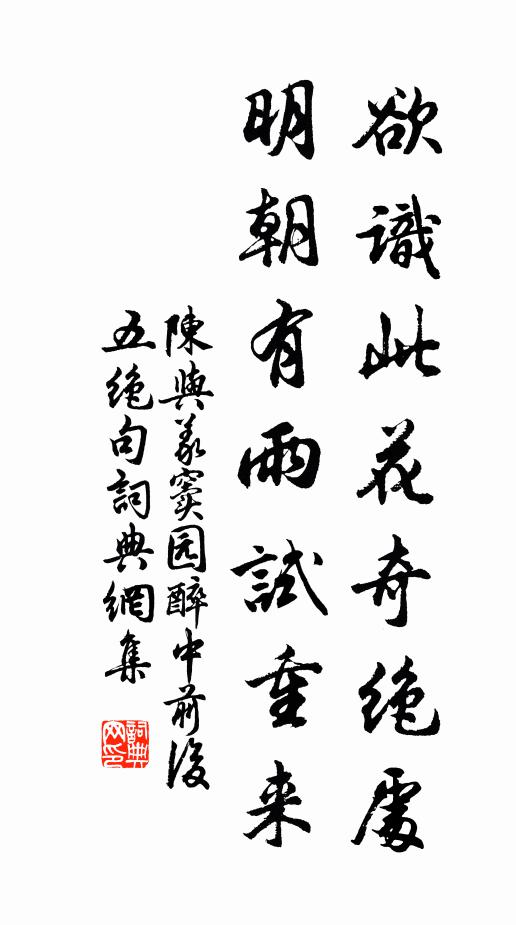 欲識此花奇絶處
明朝有雨試重来
陳與義竇园醉中前後
五絶句詞典網集
詞典網印